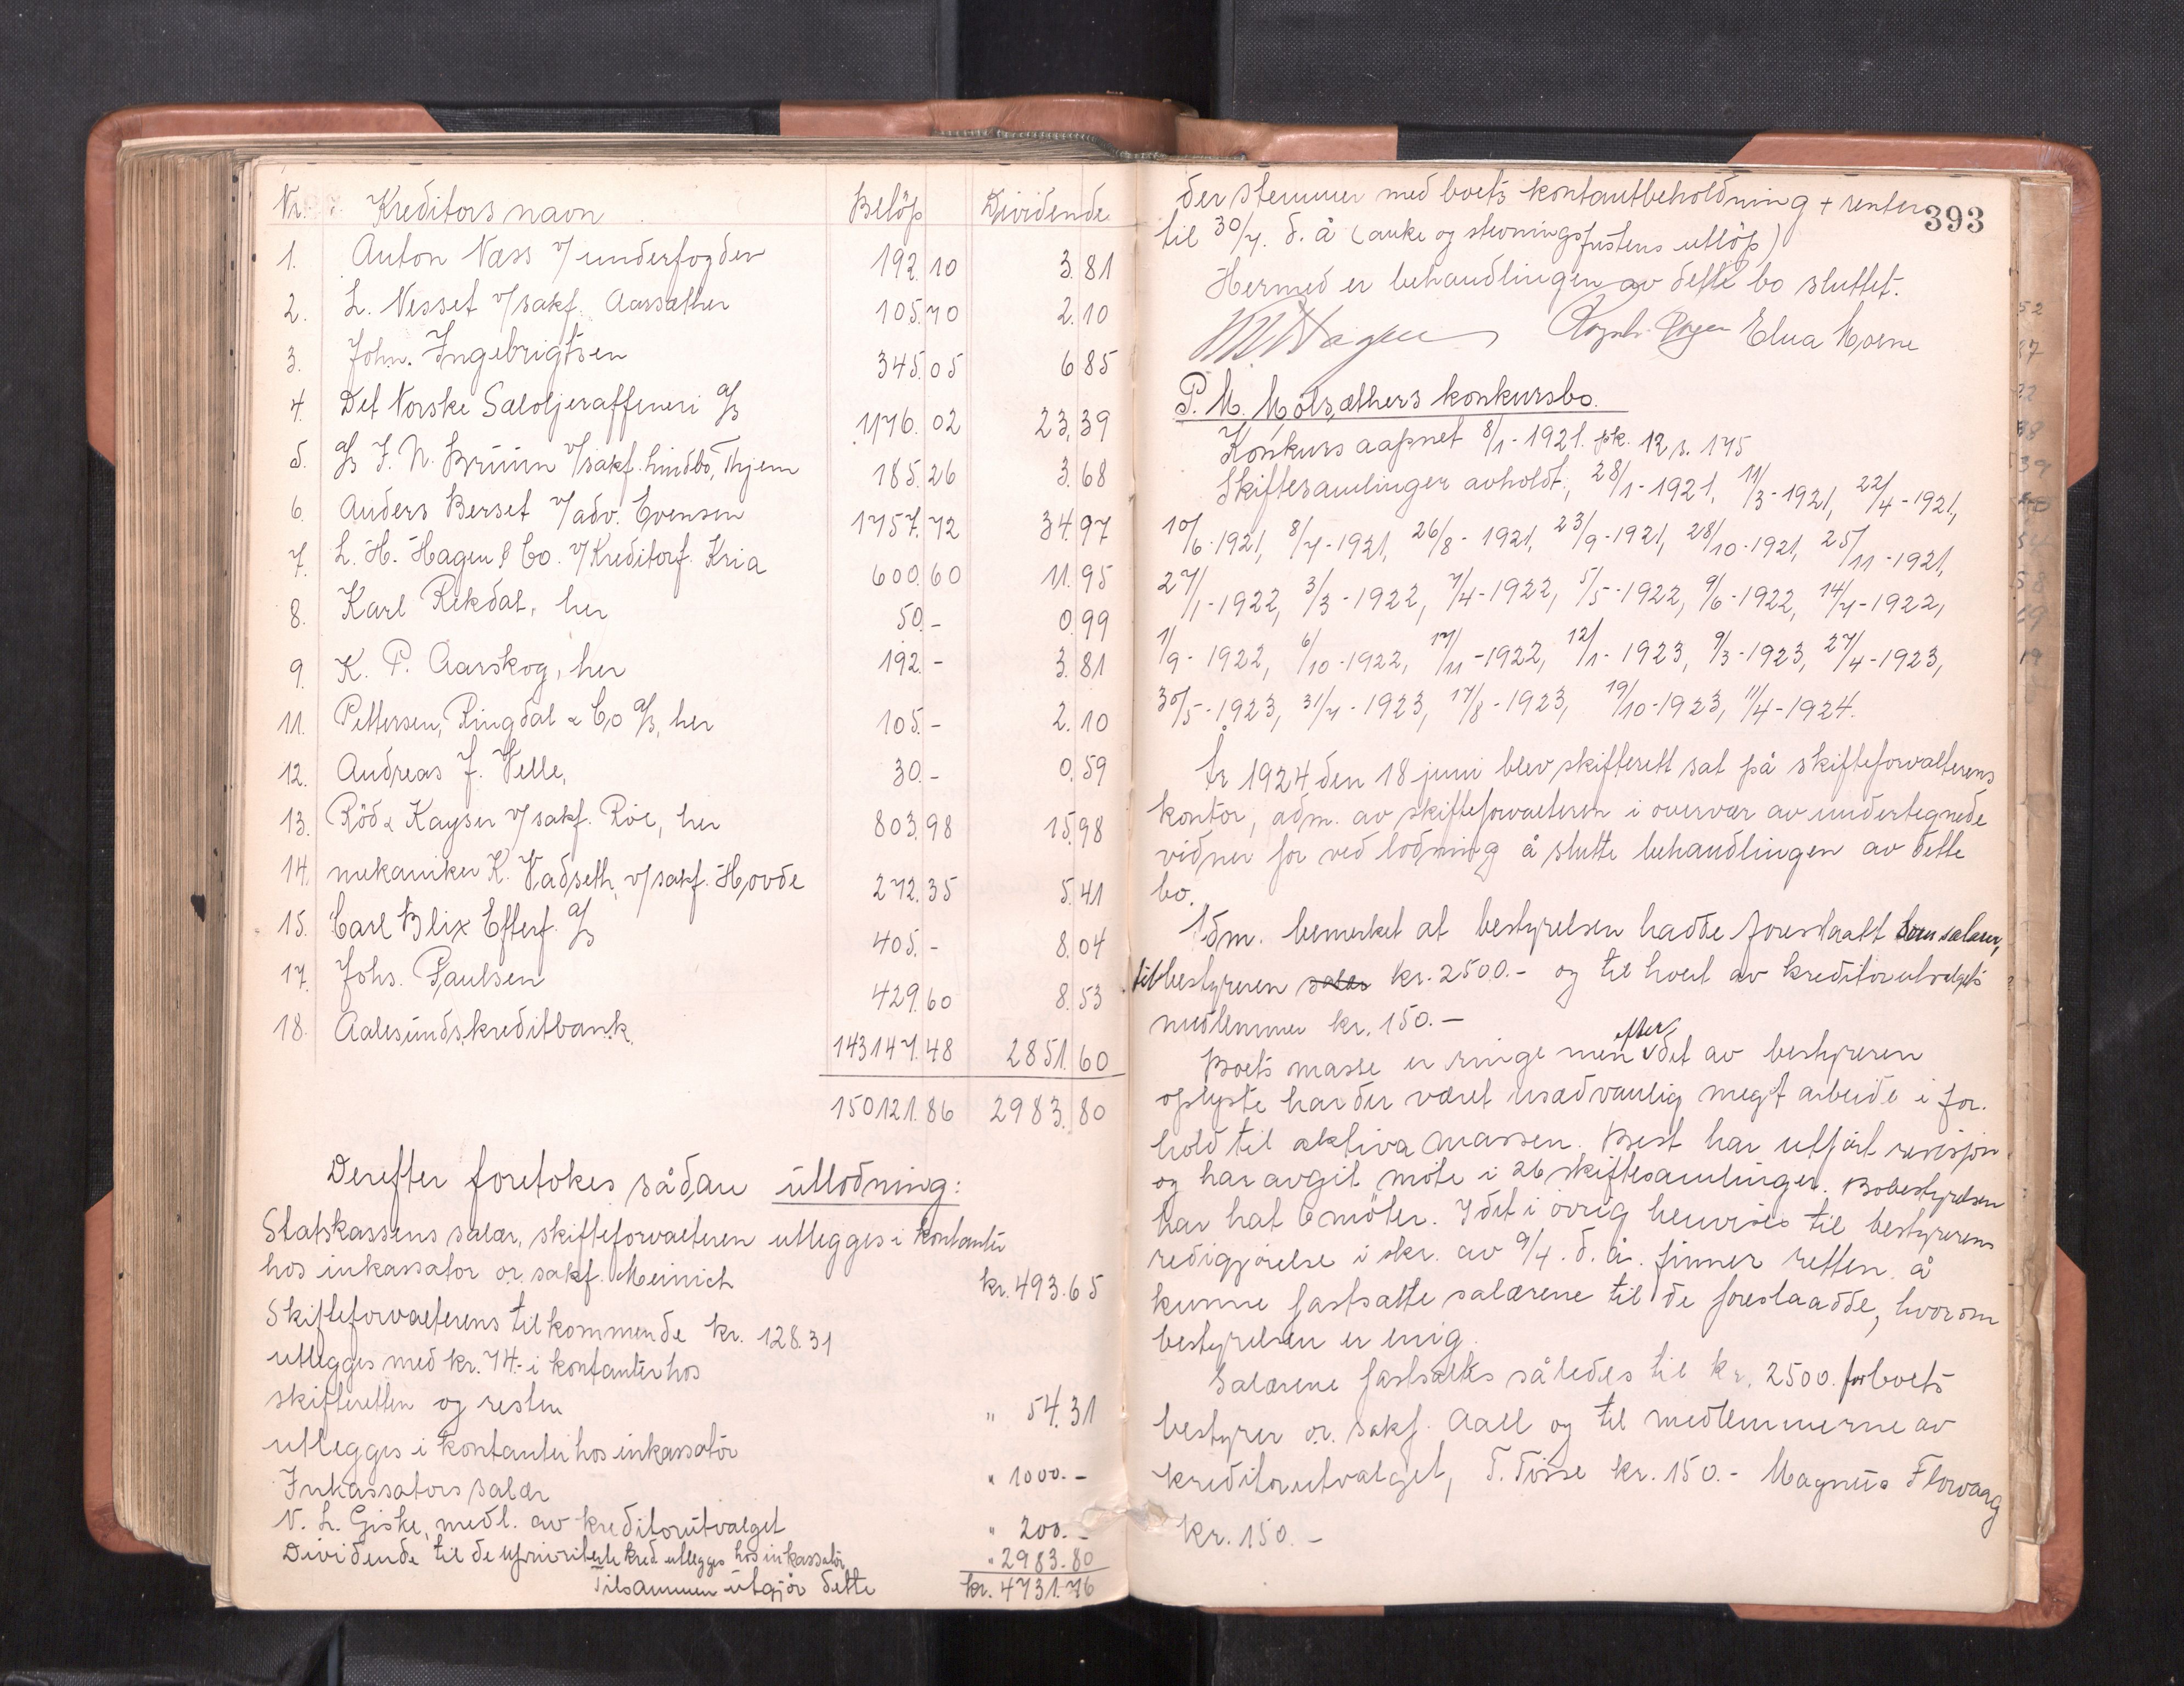 Nr. Kreditors navn Beløp Dividende
1. Anton Næss v/ underfogden 192.10 3.81
2. L. Nesset v/sakf. Aarsæther 105.70 2.10
3. John. Ingebrigtsen 345.05 6 85
4. Det Norske Sæloljeraffineri a/s 1176.02 23,39
5. a/s J. N. Bruun v/sakf. Lindbo, Thjem 185.26 3.68
6. Anders Berset v/adv. Evensen 1757.72 34.97
7. L. H. Hagen & Co. v/Kreditorf. Kria 600.60 11.95
8. Karl Rekdal, her 50.- 0.99
9. K. P. Aarskog, her 192.- 3.81
11. Pettersen, Ringdal & Co a/s, her 105.- 2.10
12. Andreas J. Velle, 30.- 0.59
13. Röd & Kayser v/sakf. Röe, her 803.98 15.98
14. mekaniker K. Vadseth, v/sakf. Hovde 272.35 5.41
15. Carl Blix Efterf. a/s 405.- 8.04
17. Johs. Paulsen 429.60 8.53
18. Aalesunds kreditbank 143147.48 2851.60
150121.86 2983.80
Derefter foretokes sådan utlodning:
Statskassens salær, skifteforvalteren utlegges i kontanter
hos inkassator o.r. sakf. Meinich kr. 493.65
Skifteforvalterens tilkommende kr. 128.31
utlegges med kr. 74.- i kontanter hos
skifteretten og resten
utlegges i kontanter hos inkassator " 54.31
Inkassators salær " 1000.-
N. L. Giske, medl. av kreditorutvalget " 200.-
Dividende til de uprioriterte kred. utlegges hos inkassator " 2983.80
Tilsammen utgjør dette kr. 4731.76
393
der stemmer med boets kontantbeholdning + renter
til 30/7. d. å (anke og stevningsfristens utløp)
Hermed er behandlingen av dette bo sluttet.
Elna Moene
P. M. Molsæthers konkursbo.
Konkurs aapnet 8/1-1921. pk. 12 s. 175
Skiftesamlinger avholdt, 28/1-1921, 11/3-1921, 22/4-1921,
10/6-1921, 8/7-1921, 26/8-1921, 23/9-1921, 28/10-1921, 25/11-1921,
27/1-1922, 3/3-1922, 7/4-1922, 5/5-1922, 9/6-1922, 14/7-1922,
1/9-1922, 6/10-1922, 17/11-1922, 12/1-1923, 9/3-1923, 27/4-1923,
30/5-1923, 31/7-1923, 17/8-1923, 19/10-1923, 11/4-1924.
År 1924 den 18 juni blev skifterett sat på skifteforvalterens
kontor, adm. av skifteforvalteren i overvær av undertegnede
vidner for ved lodning å slutte behandlingen av dette
bo.
Adm. bemerket at bestyrelsen hadde foreslaatt som salærer,
til bestyreren salær kr. 2500.- og til hvert av kreditorutvalgets
medlemmer kr. 150.-
Boets masse er ringe men efter det av bestyreren
oplyste har der været usædvanlig megt arbeide i for.
hold til aktiva massen. Best har utført revisjon.
og har avgit møte i 26 skiftesamlinger. Bobestyrelsen
har hat 6 møter. I det i øvrig henvises til bestyrerens
redigjørelse i skr. av 9/4. d. å. finner retten å
kunne fastsatte salærene til de foreslaadde, hvorom
bestyrelsen er enig.
Salærene fastsattes således til kr. 2500. for boets
bestyrer o.r. sakf. Aall og til medlemmerne av
kreditorutvalget, T. Tosse kr. 150.- Magnus Florvaag
kr. 150.-